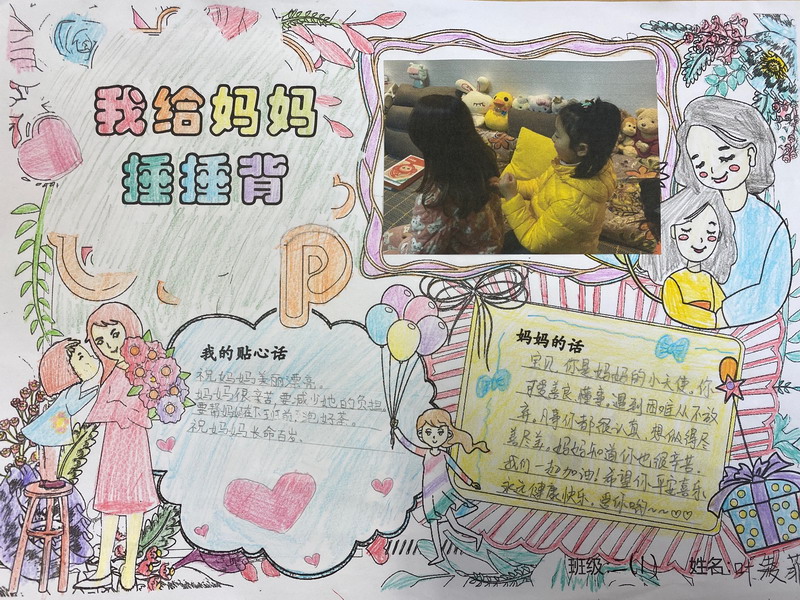 我给妈妈
捶捶背
p
我的贴心话
祝妈妈美丽漂亮。
妈妈很辛苦,要减少她的负担。
要帮妈妈在下班前泡好茶。
祝妈妈长命百岁。
妈妈的话
宝贝,你是妈妈的小天使。你
可爱善良,懂事。遇到困难从不放
弃。凡事你都很认真,想做得尽
善尽美。妈妈知道你也很辛苦。
我们一起加油!希望你平安喜乐
永远健康快乐。爱你哟~~♡♡
班级:一(1) 姓名:叶